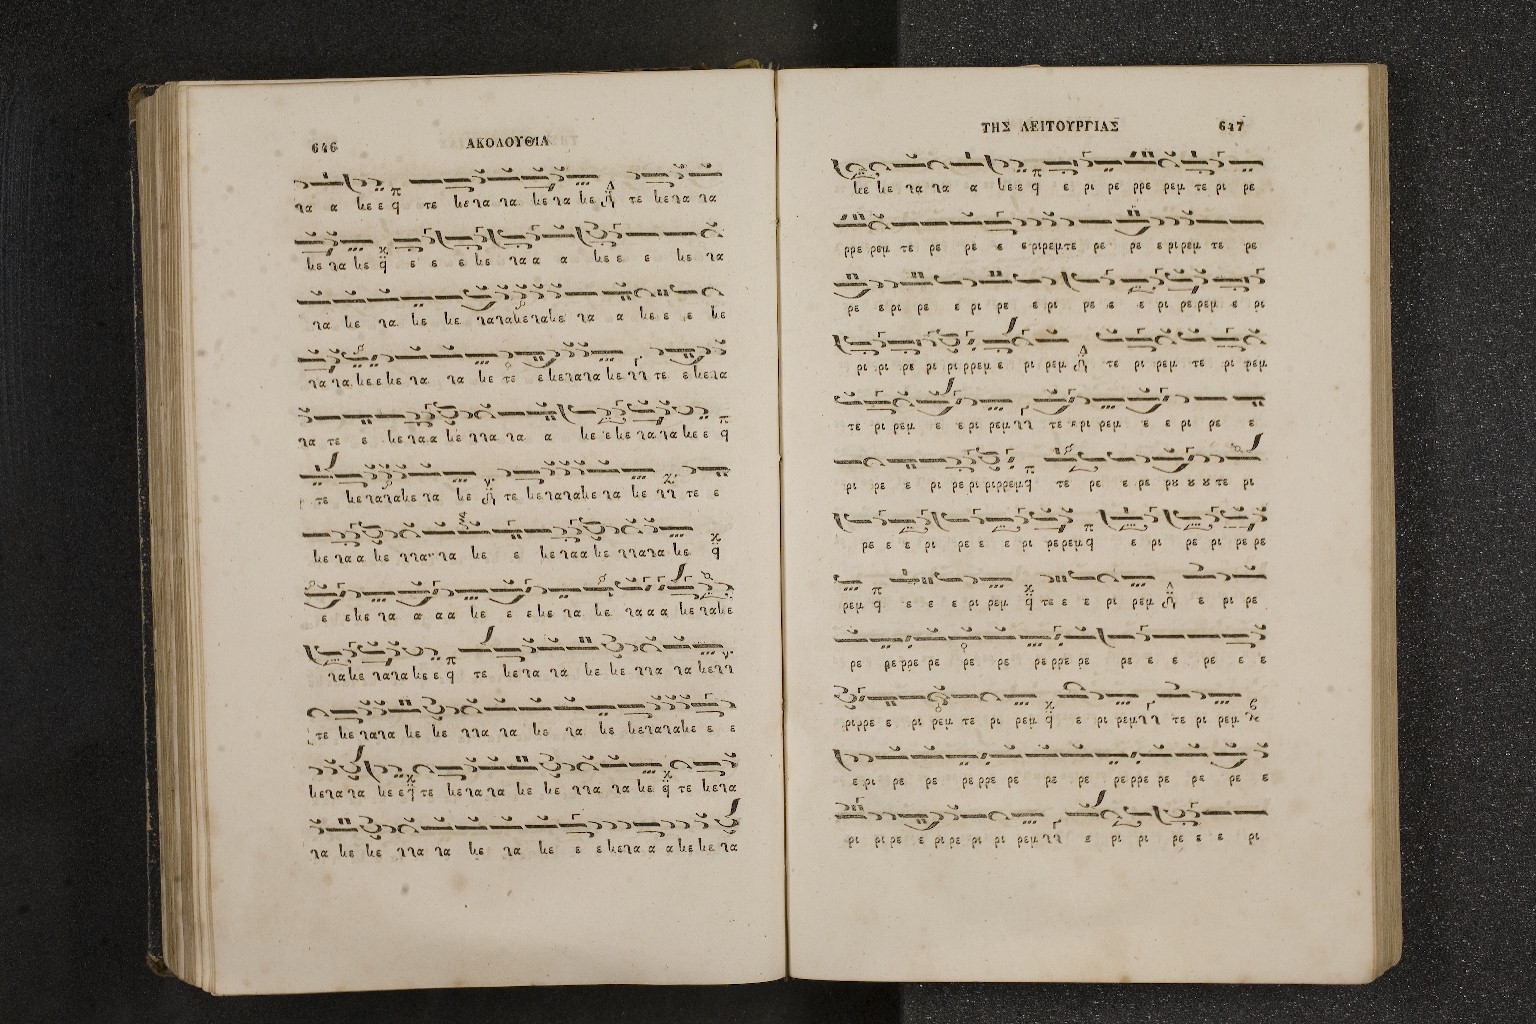 646
ΑΚΟΛΟΥΘΙΑ
ρα α κε ε τε κε ρα ρα κε ρα κε τε κε ρα ρα
κε ρα κε ε ε ε κε ρα α α κε ε ε κε ρα
ρα κε ρα κε κε ρα ρα κε ρα κε ρα α κε ε ε κε
ρα ρα κε ε κε ρα ρα κε τε ε κε ρα ρα κε τε ε κε ρα
ρα τε ε κε ρα α κε ρρα ρα α κε ε κε ρα ρα κε ε
τε κε ρα ρα κε ρα κε τε κε ρα ρα κε ρα κε τε ε
κε ρα α κε ρρα ρα κε ε κε ρα α κε ρρα ρα κε
ε ε κε ρα α α α κε ε ε κε ρα κε ρα α α κε ρα κε
ρα κε ρα ρα κε ε τε κε ρα ρα κε κε ρρα ρα κε
τε κε ρα ρα κε κε ρρα ρα κε ρα κε κε ρα ρα κε ε ε
κε ρα ρα κε ε τε κε ρα ρα κε κε ρρα ρα κε τε κε ρα
ρα κε κε ρρα ρα κε ρα κε ε ε κε ρα α α κε κε ρα
ΤΗΣ ΛΕΙΤΟΥΡΓΙΑΣ
647
κε κε ρα ρα α κε ε ε ρι ρε ρρε ρεμ τε ρι ρε
ρρε ρεμ τε ρε ρε ε ε ρι ρεμ τε ρε ρε ε ρι ρεμ τε ρε
ρε ε ρι ρε ε ρι ρε ε ρι ρε ε ε ρι ρε ρεμ ε ρι
ρι ρι ρε ρι ρι ρρεμ ε ρι ρεμ τε ρι ρεμ τε ρι ρεμ
τε ρι ρεμ ε ε ρι ρεμ τε ε ρι ρεμ ε ε ρι ρε ε
ρι ρε ε ρι ρε ρι ρι ρρεμ τε ρε ε ρε ρου ου ου τε ρι
ρε ε ε ρι ρε ε ε ρι ρε ρεμ ε ρι ρε ρι ρε ρε
ρεμ ε ε ε ρι ρεμ τε ε ε ρι ρεμ ε ρι ρε
ρε ρε ρρε ρε ρε ρε ρε ρρε ρε ρε ε ε ρε ε ε
ρι ρρε ε ρι ρεμ τε ρι ρεμ ε ρι ρεμ τε ρι ρεμ
ε ρι ρε ρε ρε ρρε ρε ρε ρε ρε ρρε ρε ρε ρε ε
ρι ρι ρε ε ρι ρε ρι ρι ρεμ ε ρι ρι ρε ε ε ρι